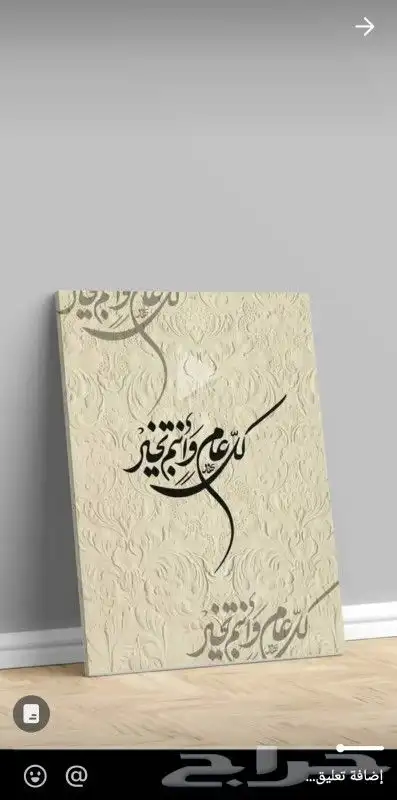 كل عام وأنتم بخير
كلّ عام وَأنتم بخير
كلّ عام وَأنتم بخير
إضافة تعليق...
@
حراج